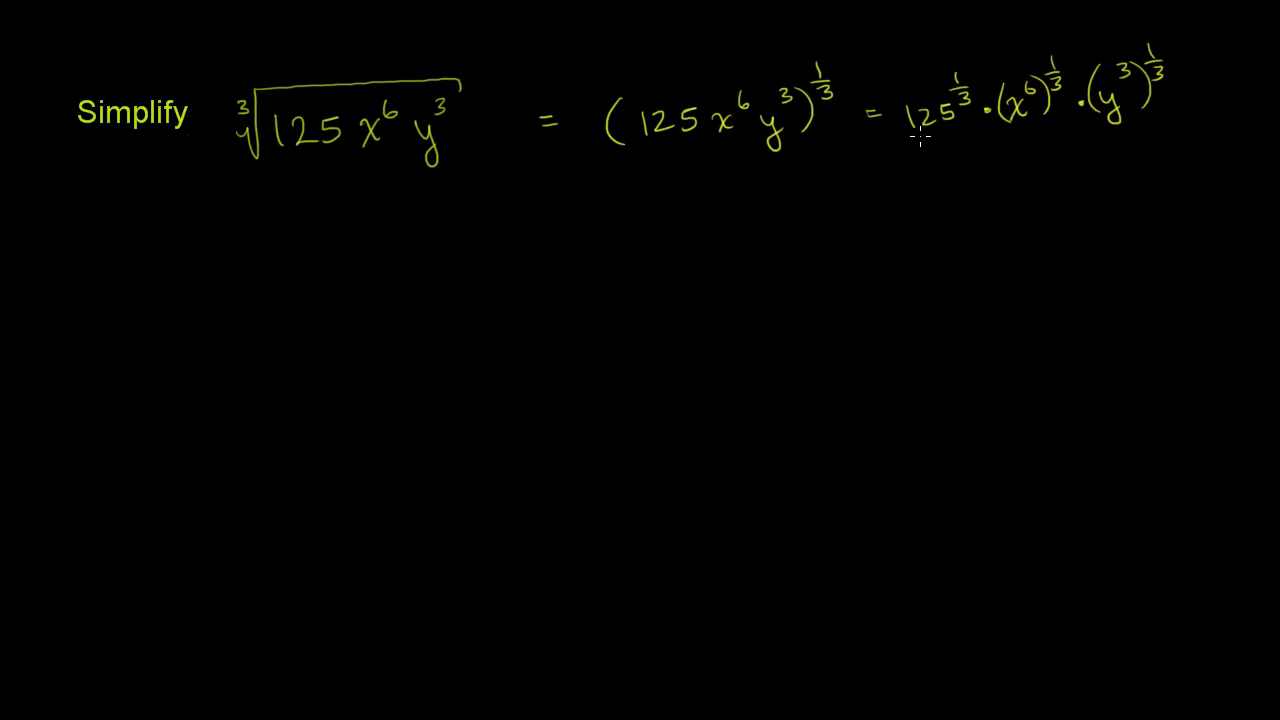 Simplify ∛(125x⁶y³) = (125x⁶y³)^(1/3) = 125^(1/3) · (x⁶)^(1/3) · (y³)^(1/3)